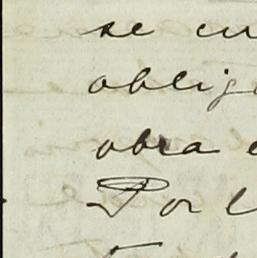 se cu
oblig
obra e
Por l